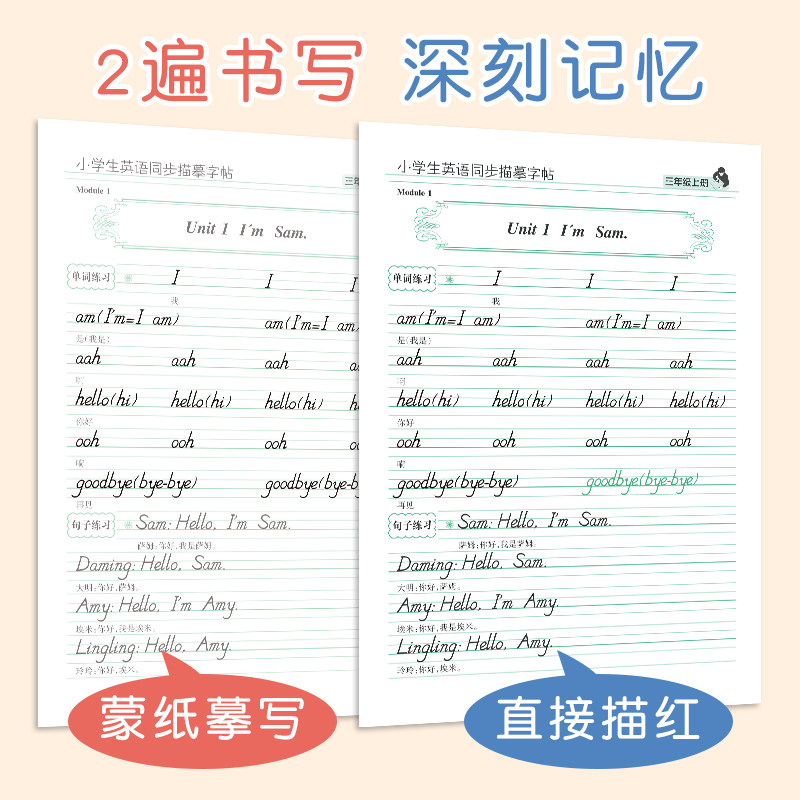 2遍书写 深刻记忆
小学生英语同步描摹字帖
三年
Module 1
Unit 1 I'm Sam.
单词练习 I I I
我
am(I'm=I am) am(I'm=I am)
是(我是)
aah aah aah
啊
hello(hi) hello(hi) hello(hi)
你好
ooh ooh ooh
嗬
goodbye(bye-bye) goodbye(bye-b
再见
句子练习 Sam: Hello, I'm Sam.
萨姆:你好,我是萨姆。
Daming: Hello, Sam.
大明:你好,萨姆。
Amy: Hello, I'm Amy.
埃米:你好,我是埃米。
Lingling: Hello, Amy.
玲玲:你好,埃米。
蒙纸摹写
小学生英语同步描摹字帖
三年级上册
Module 1
Unit 1 I'm Sam.
单词练习 I I I
我
am(I'm=I am) am(I'm=I am)
是(我是)
aah aah aah aah
啊
hello(hi) hello(hi) hello(hi) hello(hi)
你好
ooh ooh ooh ooh
goodbye(bye-bye) goodbye(bye-bye)
再见
句子练习 Sam: Hello, I'm Sam.
萨姆:你好,我是萨姆。
Daming: Hello, Sam.
大明:你好,萨姆。
Amy: Hello, I'm Amy.
埃米:你好,我是埃米。
Lingling: Hello, Amy.
玲玲:你好,埃米。
直接描红